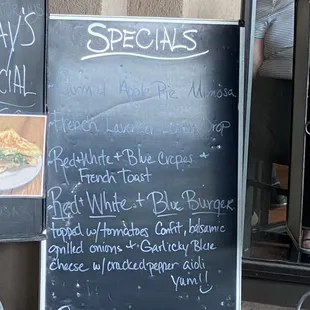 AY'S
CIAL
SPECIALS
Apple Pie Mimosa
French Drop
Red+White+Blue Crepes +
French Toast
Red + White + Blue Burger
topped w/tomatoes Confit, balsamic
grilled onions + Garlicky Blue
cheese w/cracked pepper aioli
Yum!!